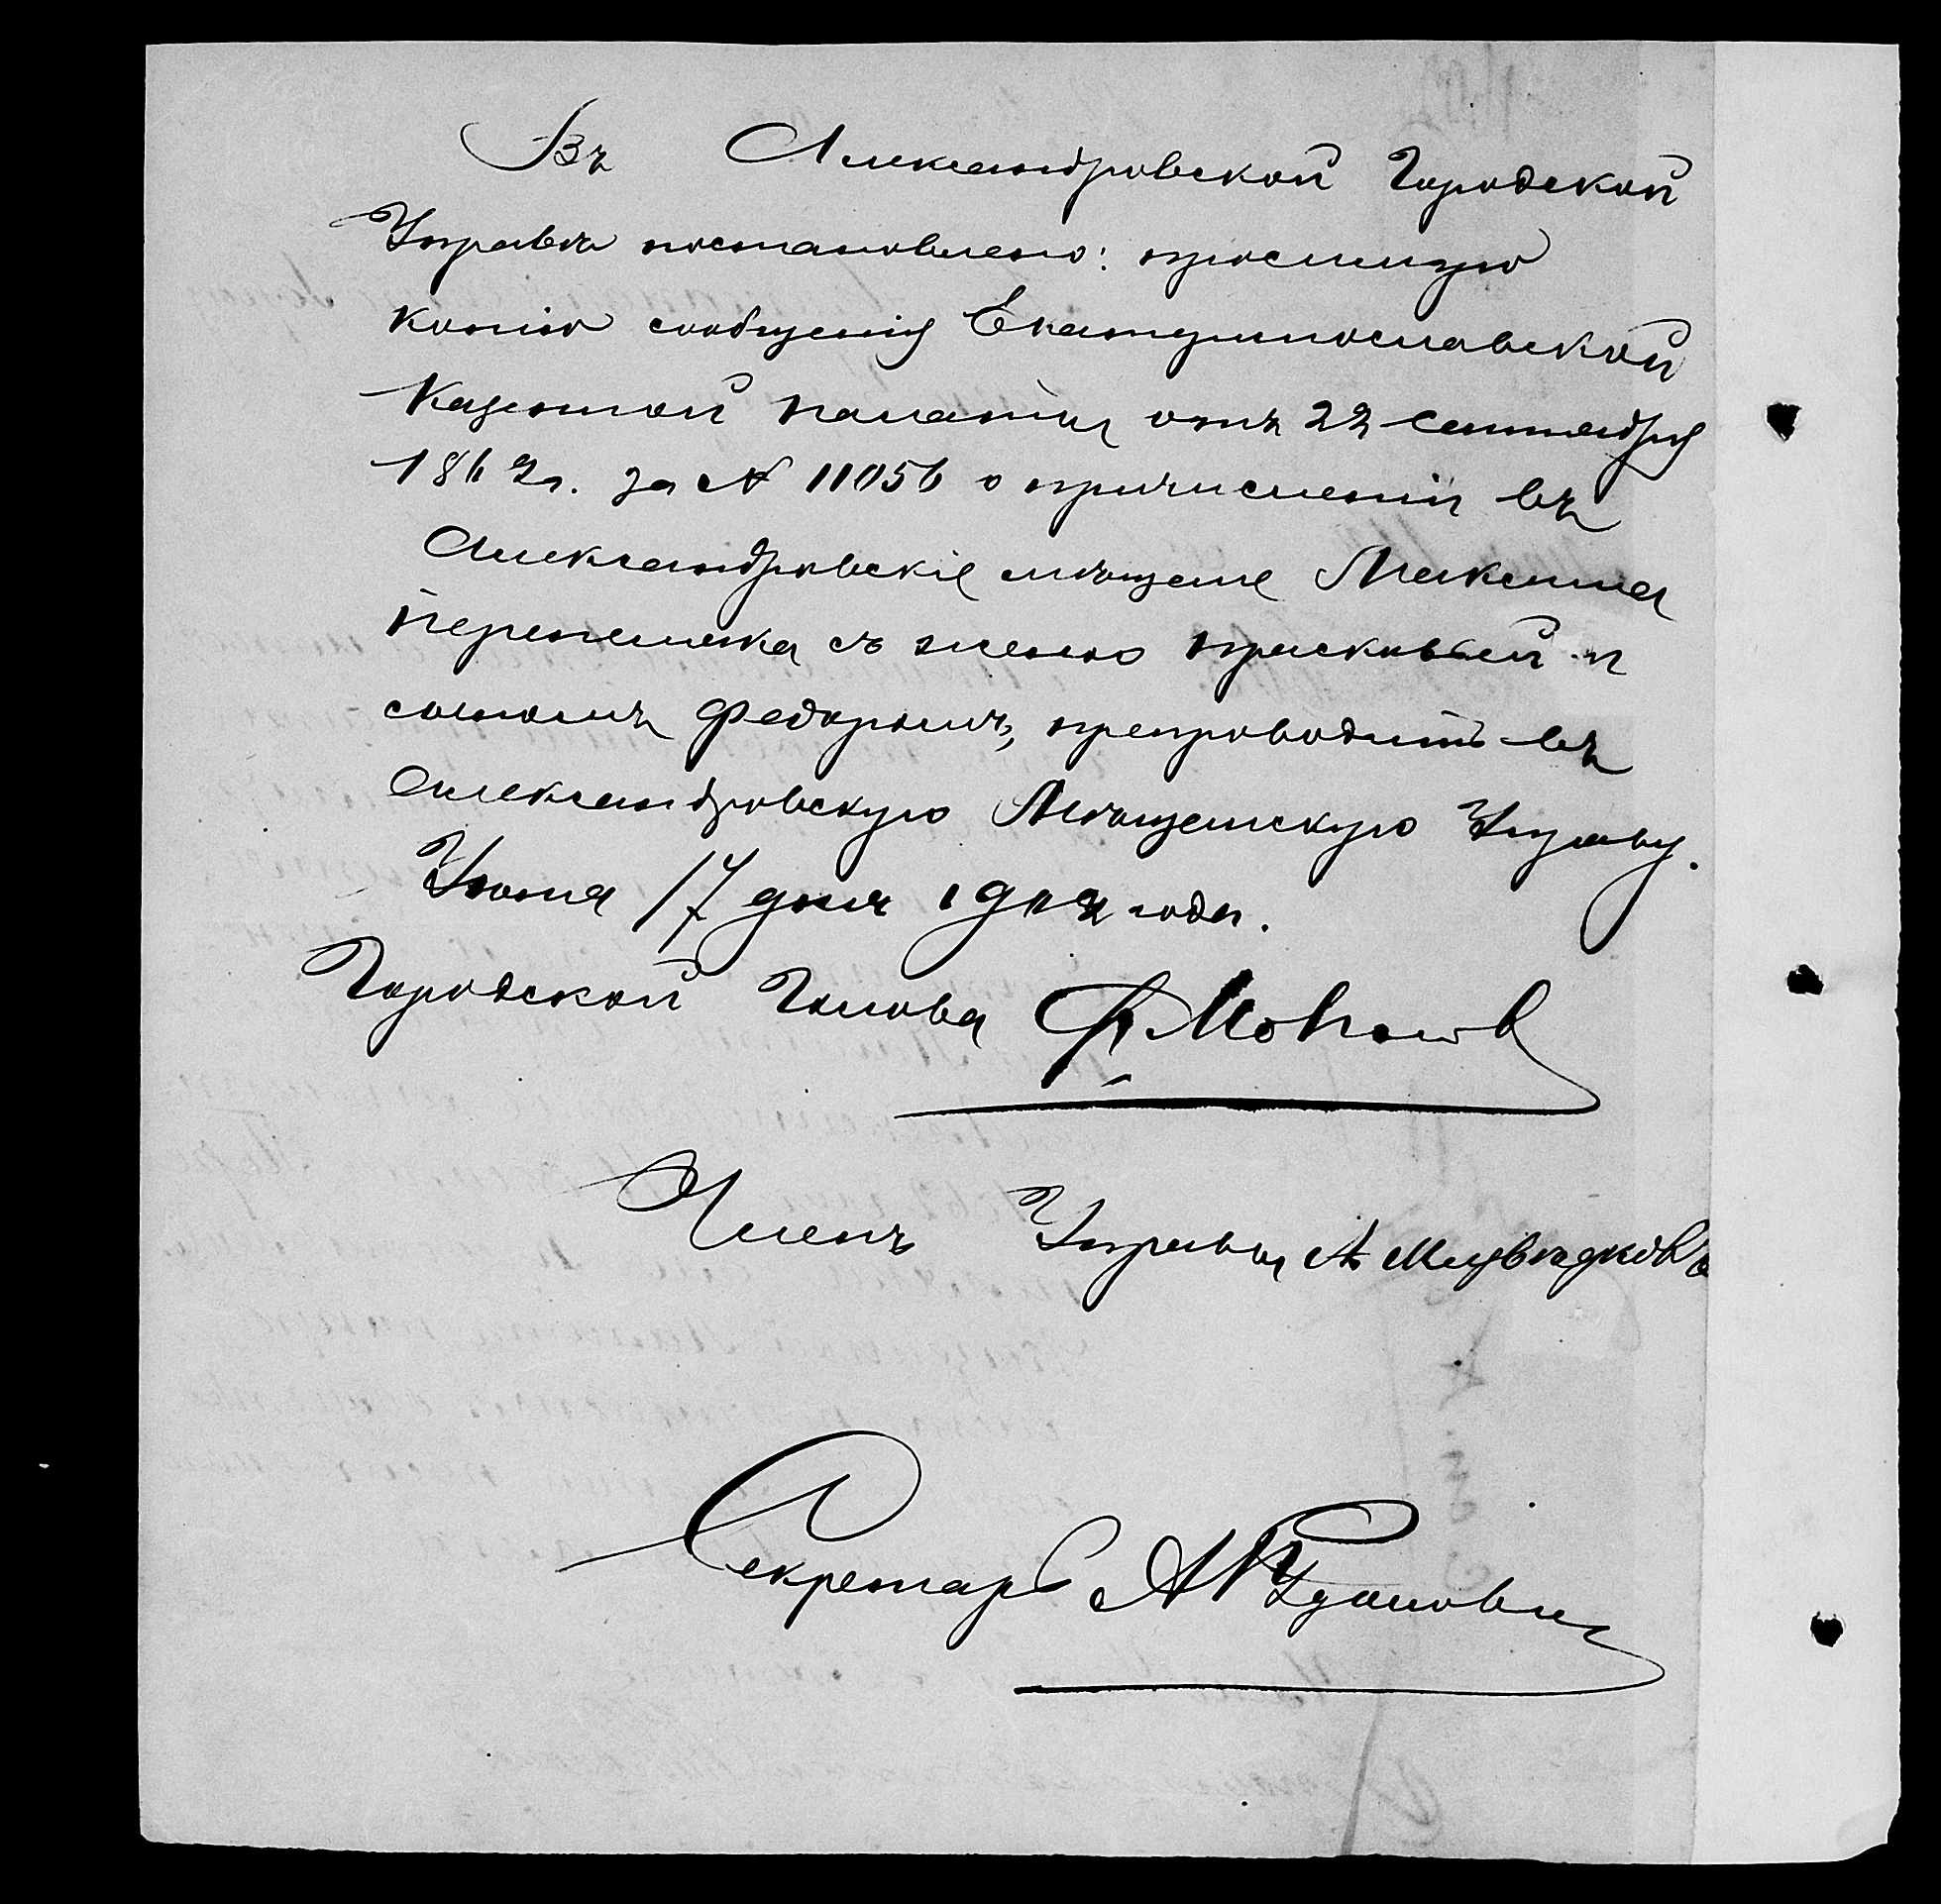 Въ Александровской Городской
Управѣ постановлено: простую
копію сообщенія Екатеринославской
Казенной палаты отъ 22 Сентября
1862г. за № 11056 о причисленіи въ
Александровскіе мѣщане Максима
Перепелика съ женою прасковьей и
сыномъ Федоромъ, препроводить въ
Александровскую Мѣщанскую Управу.
Іюня 17 дня 1902 года.
Городской Голова Ф.
Членъ Управы А
Секретарь А